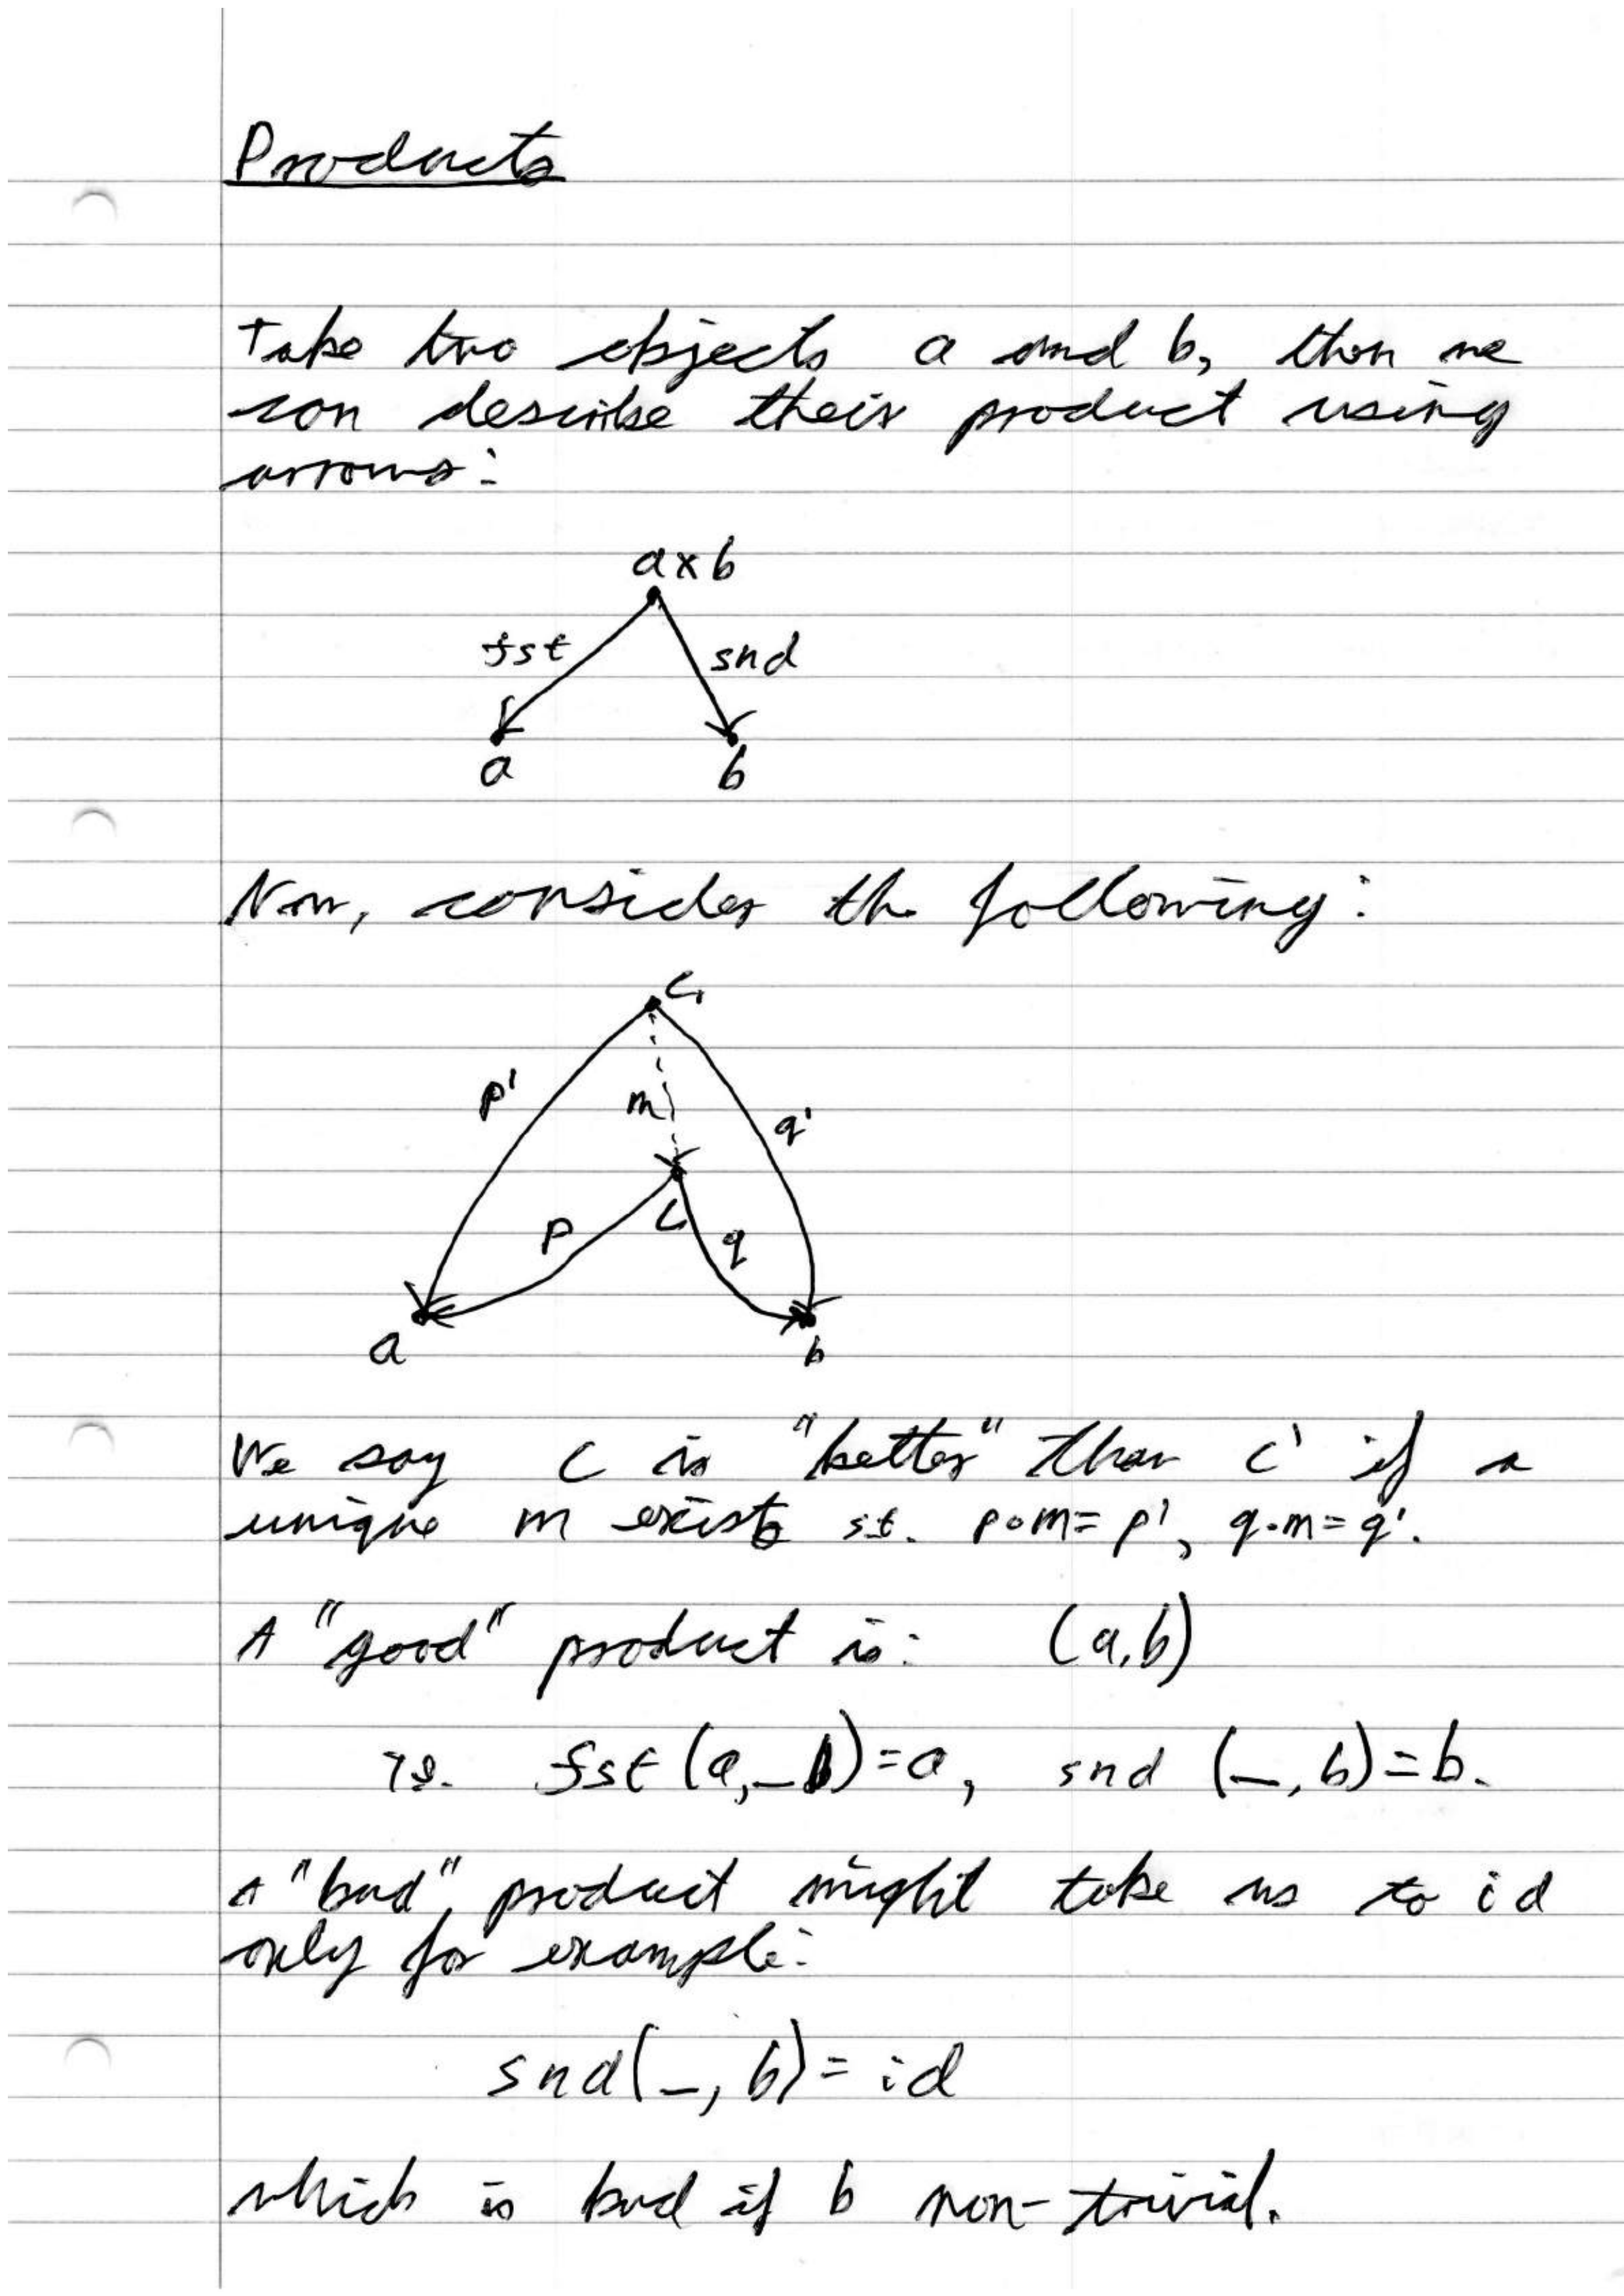 Products
Take two objects a and b, then we
can describe their product using
arrows:
a×b
fst
snd
a
b
Now, consider the following:
c,
p'
m
q'
p
c,
q
a
b
We say c is "better" than c' if a
unique m exists st. p∘m=p', q∘m=q'.
A "good" product is: (a,b)
ie. fst (a,_)=a, snd (_, b)=b.
A "bad" product might take us to id
only for example:
snd(_, b)=id
which is bad if b non-trivial.